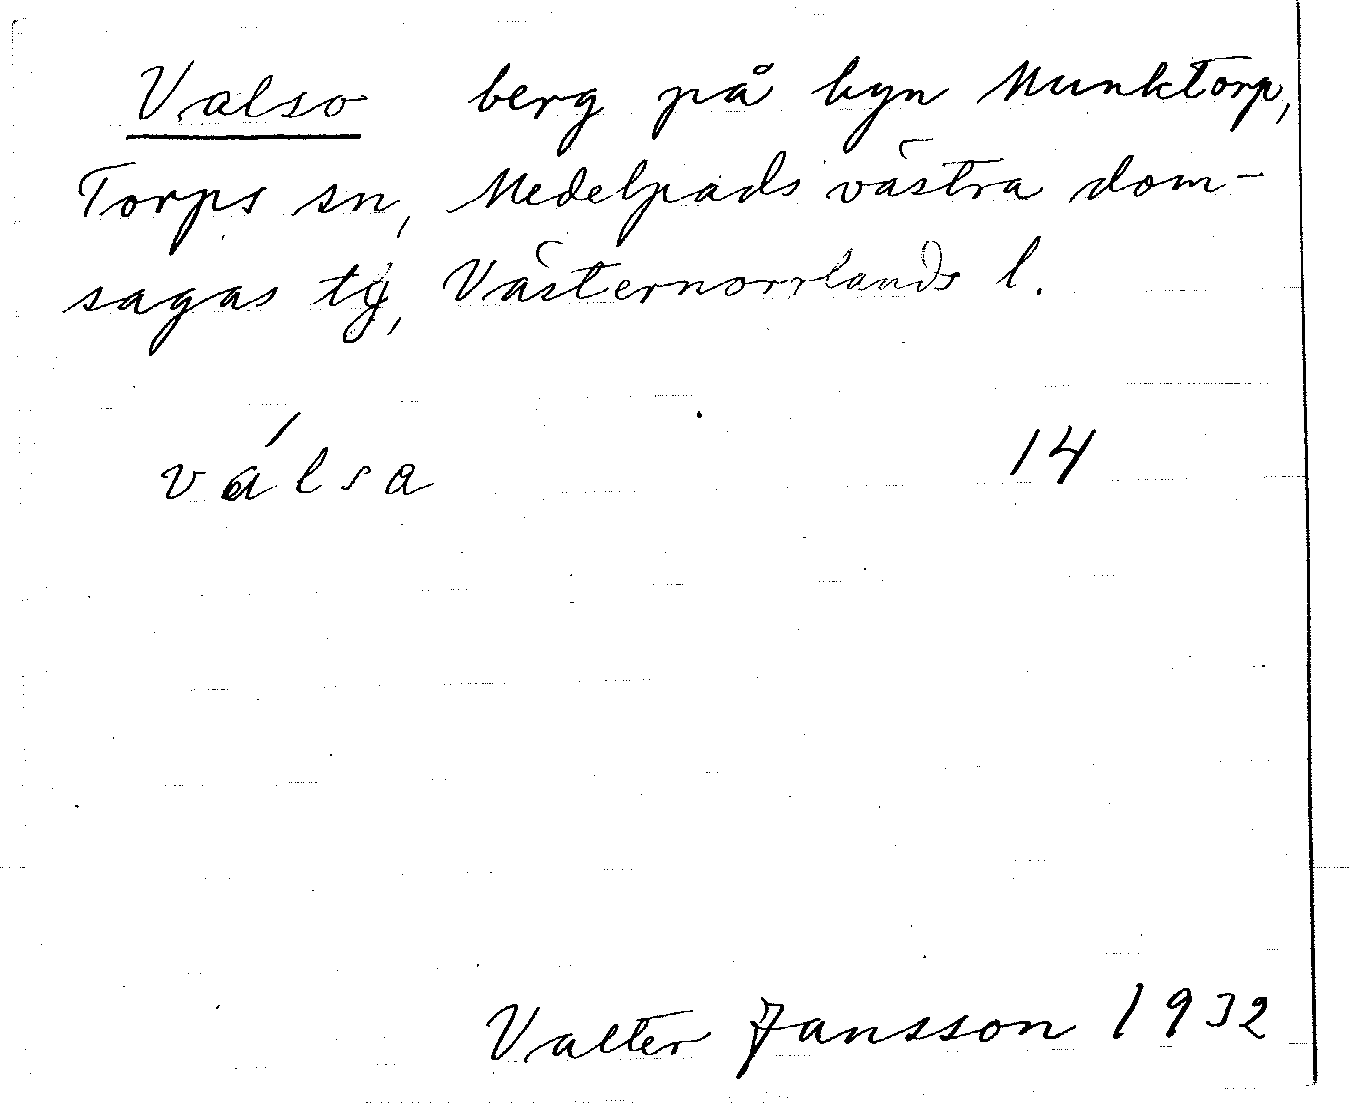 Valso berg på byn Munktorp,
Torps sn, Medelpads västra dom-
sagas tg, Västernorrlands l.
válsa 14
Valter Jansson 1932